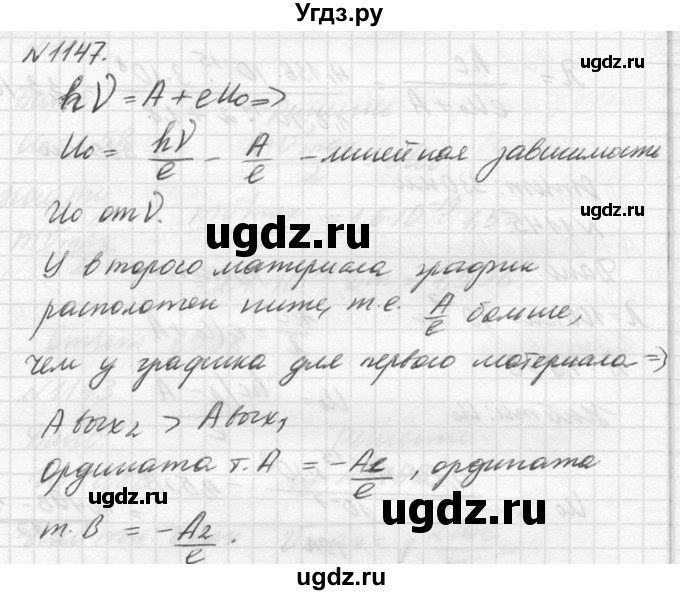 Угдз.ру
N1147.
hν = A + eU₀ =>
U₀ = hν/e - A/e - линейная зависимость
U₀ от ν.
ugdz.ru
ugdz.ru
У второго материала график
расположен ниже, т.е. A/e больше,
чем у графика для первого материала =>
ugdz.ru
Aвых₂ > Aвых₁
ордината т. A = - /e, ордината
т. B = -A₂/e.
ugdz.ru
ugdz.ru
ugdz.ru